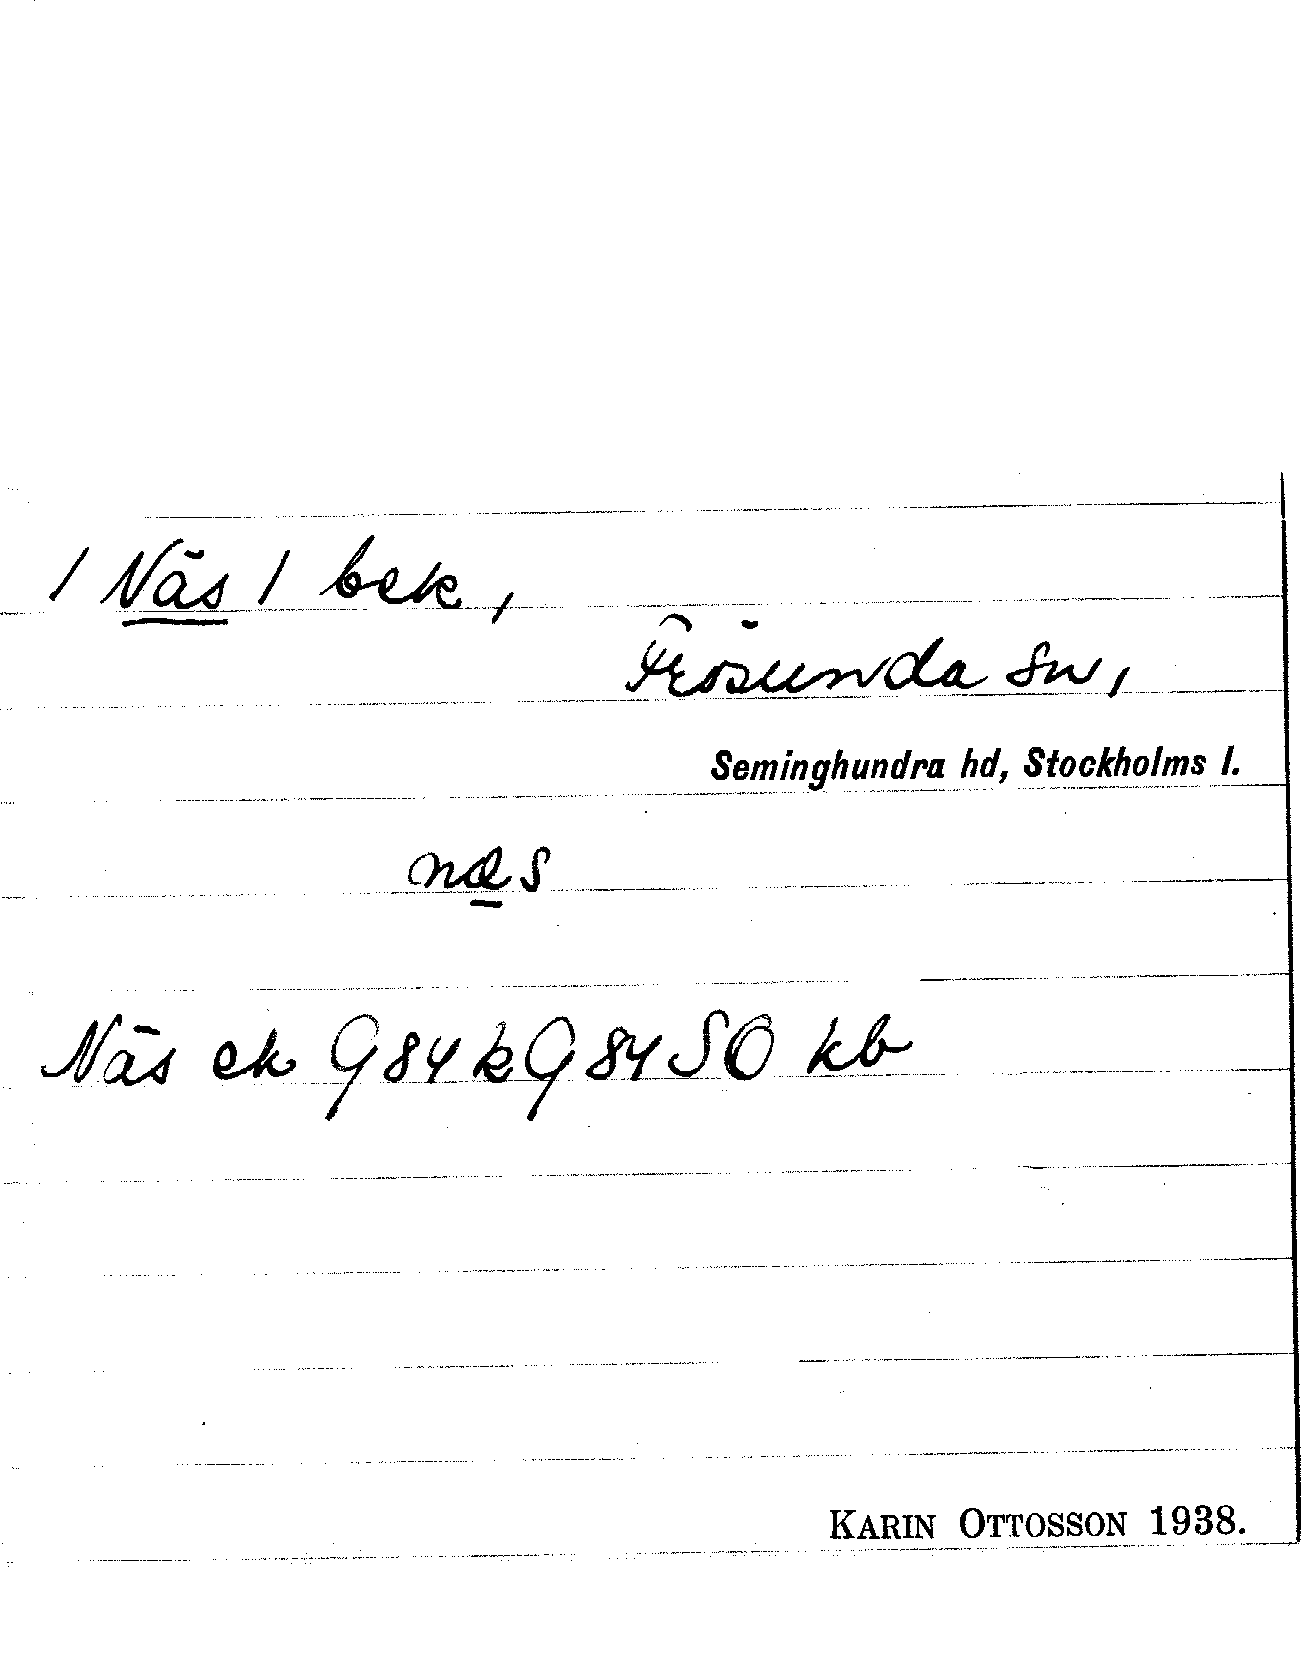 / Näs / bek,
Frösunda sn,
Seminghundra hd, Stockholms l.
næs
Näs ek G84k G84SO kb
KARIN OTTOSSON 1938.